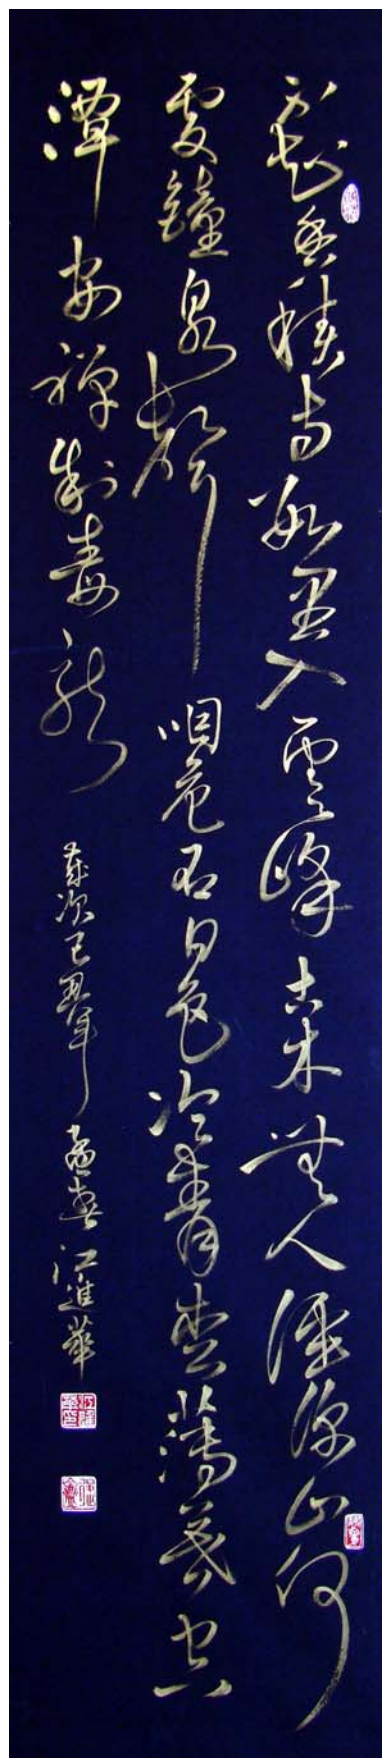 不知香積寺數里入雲峰古木無人徑深山何
處鐘泉聲咽危石日色冷青松薄暮空
潭安禪制毒龍
歲次己丑年孟春江進華